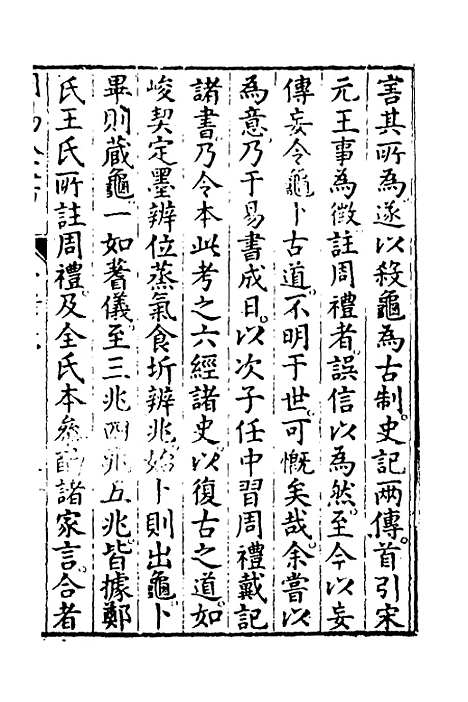 害其所為遂以殺龜為古制史記兩傳首引宋
元王事為徵註周禮者誤信以為然至今以妄
傳妄令龜卜古道不明于世可慨矣哉余嘗以
為意乃于易書成日以次子任中習周禮戴記
諸書乃令本此考之六經諸史以復古之道如
峻契定墨辨位蒸氣食坼辨兆始卜則出龜卜
畢則藏龜一如蓍儀至三兆四兆五兆皆據鄭
氏王氏所註周禮及全氏本參諸家言合者